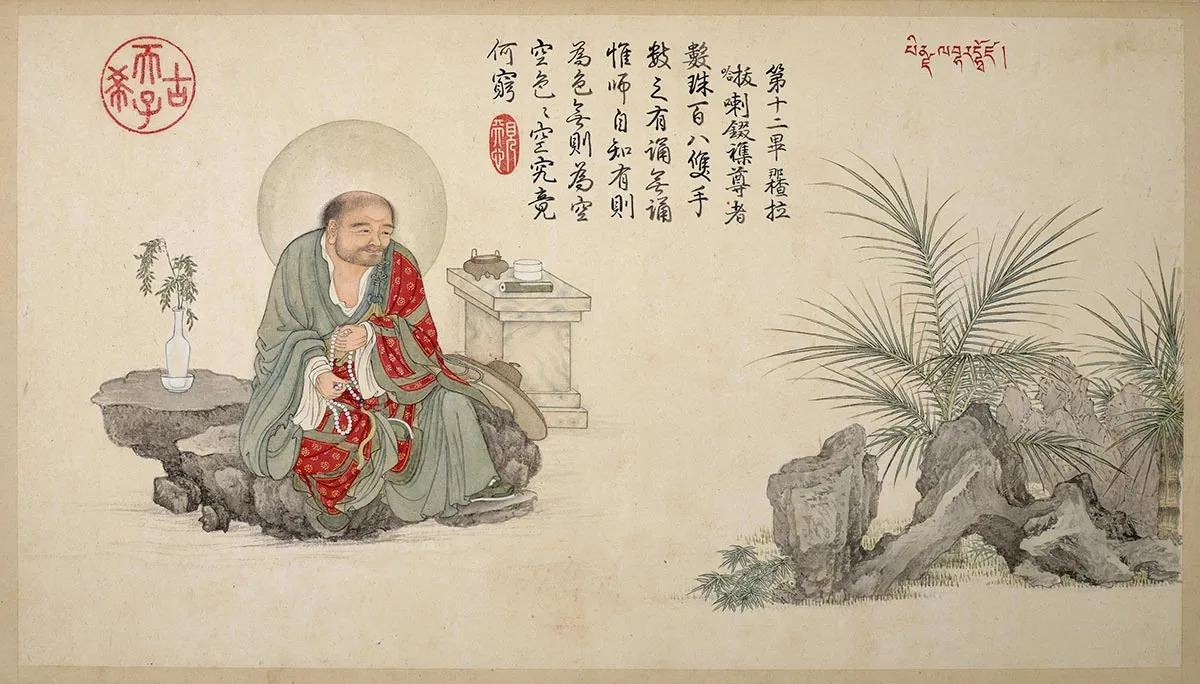 第十二畢那楂拉
拔哈喇錣襍尊者
數珠百八雙手
數之有誦無誦
惟師自知有則
為色無則為空
空色〻空究竟
何窮
見天心
古希天子